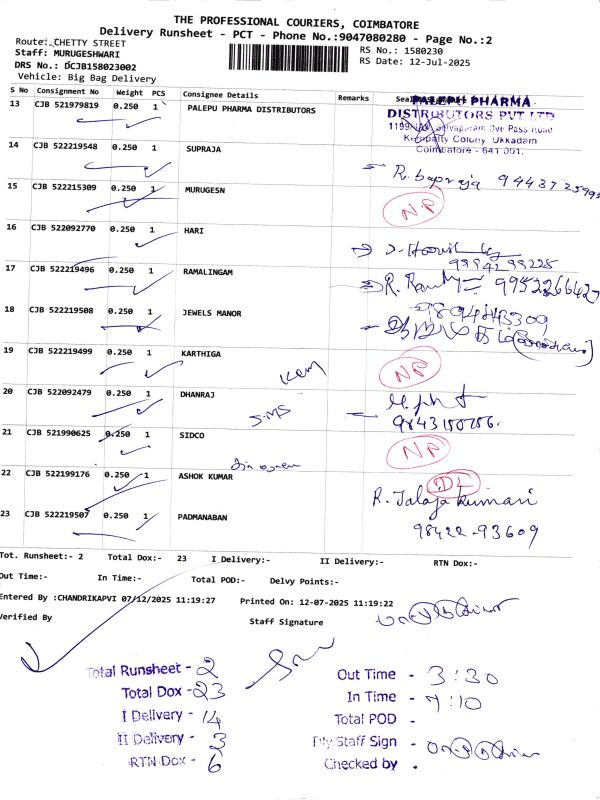 THE PROFESSIONAL COURIERS, COIMBATORE
Delivery Runsheet - PCT - Phone No.:9047080280 - Page No.:2
Route: CHETTY STREET
Staff: MURUGESHWARI
RS No.: 1580230
DRS No.: DCJB158023002
RS Date: 12-Jul-2025
Vehicle: Big Bag Delivery
S No Consignment No Weight PCS Consignee Details Remarks
13 CJB 521979819 0.250 1 PALEPU PHARMA DISTRIBUTORS
PALEPU PHARMA
DISTRIBUTORS PVT LTD
Bye Pass Road
Colony Ukkadam
Coimbatore - 641 001.
14 CJB 522219548 0.250 1 SUPRAJA
15 CJB 522215309 0.250 1 MURUGESN
NP
16 CJB 522092770 0.250 1 HARI
17 CJB 522219496 0.250 1 RAMALINGAM
18 CJB 522219508 0.250 1 JEWELS MANOR
19 CJB 522219499 0.250 1 KARTHIGA
NP
20 CJB 522092479 0.250 1 DHANRAJ
SMS
21 CJB 521990625 0.250 1 SIDCO
NP
22 CJB 522199176 0.250 1 ASHOK KUMAR
DL
23 CJB 522219507 0.250 1 PADMANABAN
98422-93609
Tot. Runsheet:- 2 Total Dox:- 23 I Delivery:- II Delivery:- RTN Dox:-
Out Time:- In Time:- Total POD:- Delvy Points:-
Entered By :CHANDRIKAPVI 07/12/2025 11:19:27 Printed On: 12-07-2025 11:19:22
Verified By Staff Signature
Total Runsheet - 2
Total Dox - 23
I Delivery - 14
II Delivery - 3
RTN Dox - 6
Out Time - 3:30
In Time - 7:10
Total POD -
Dly Staff Sign -
Checked by .